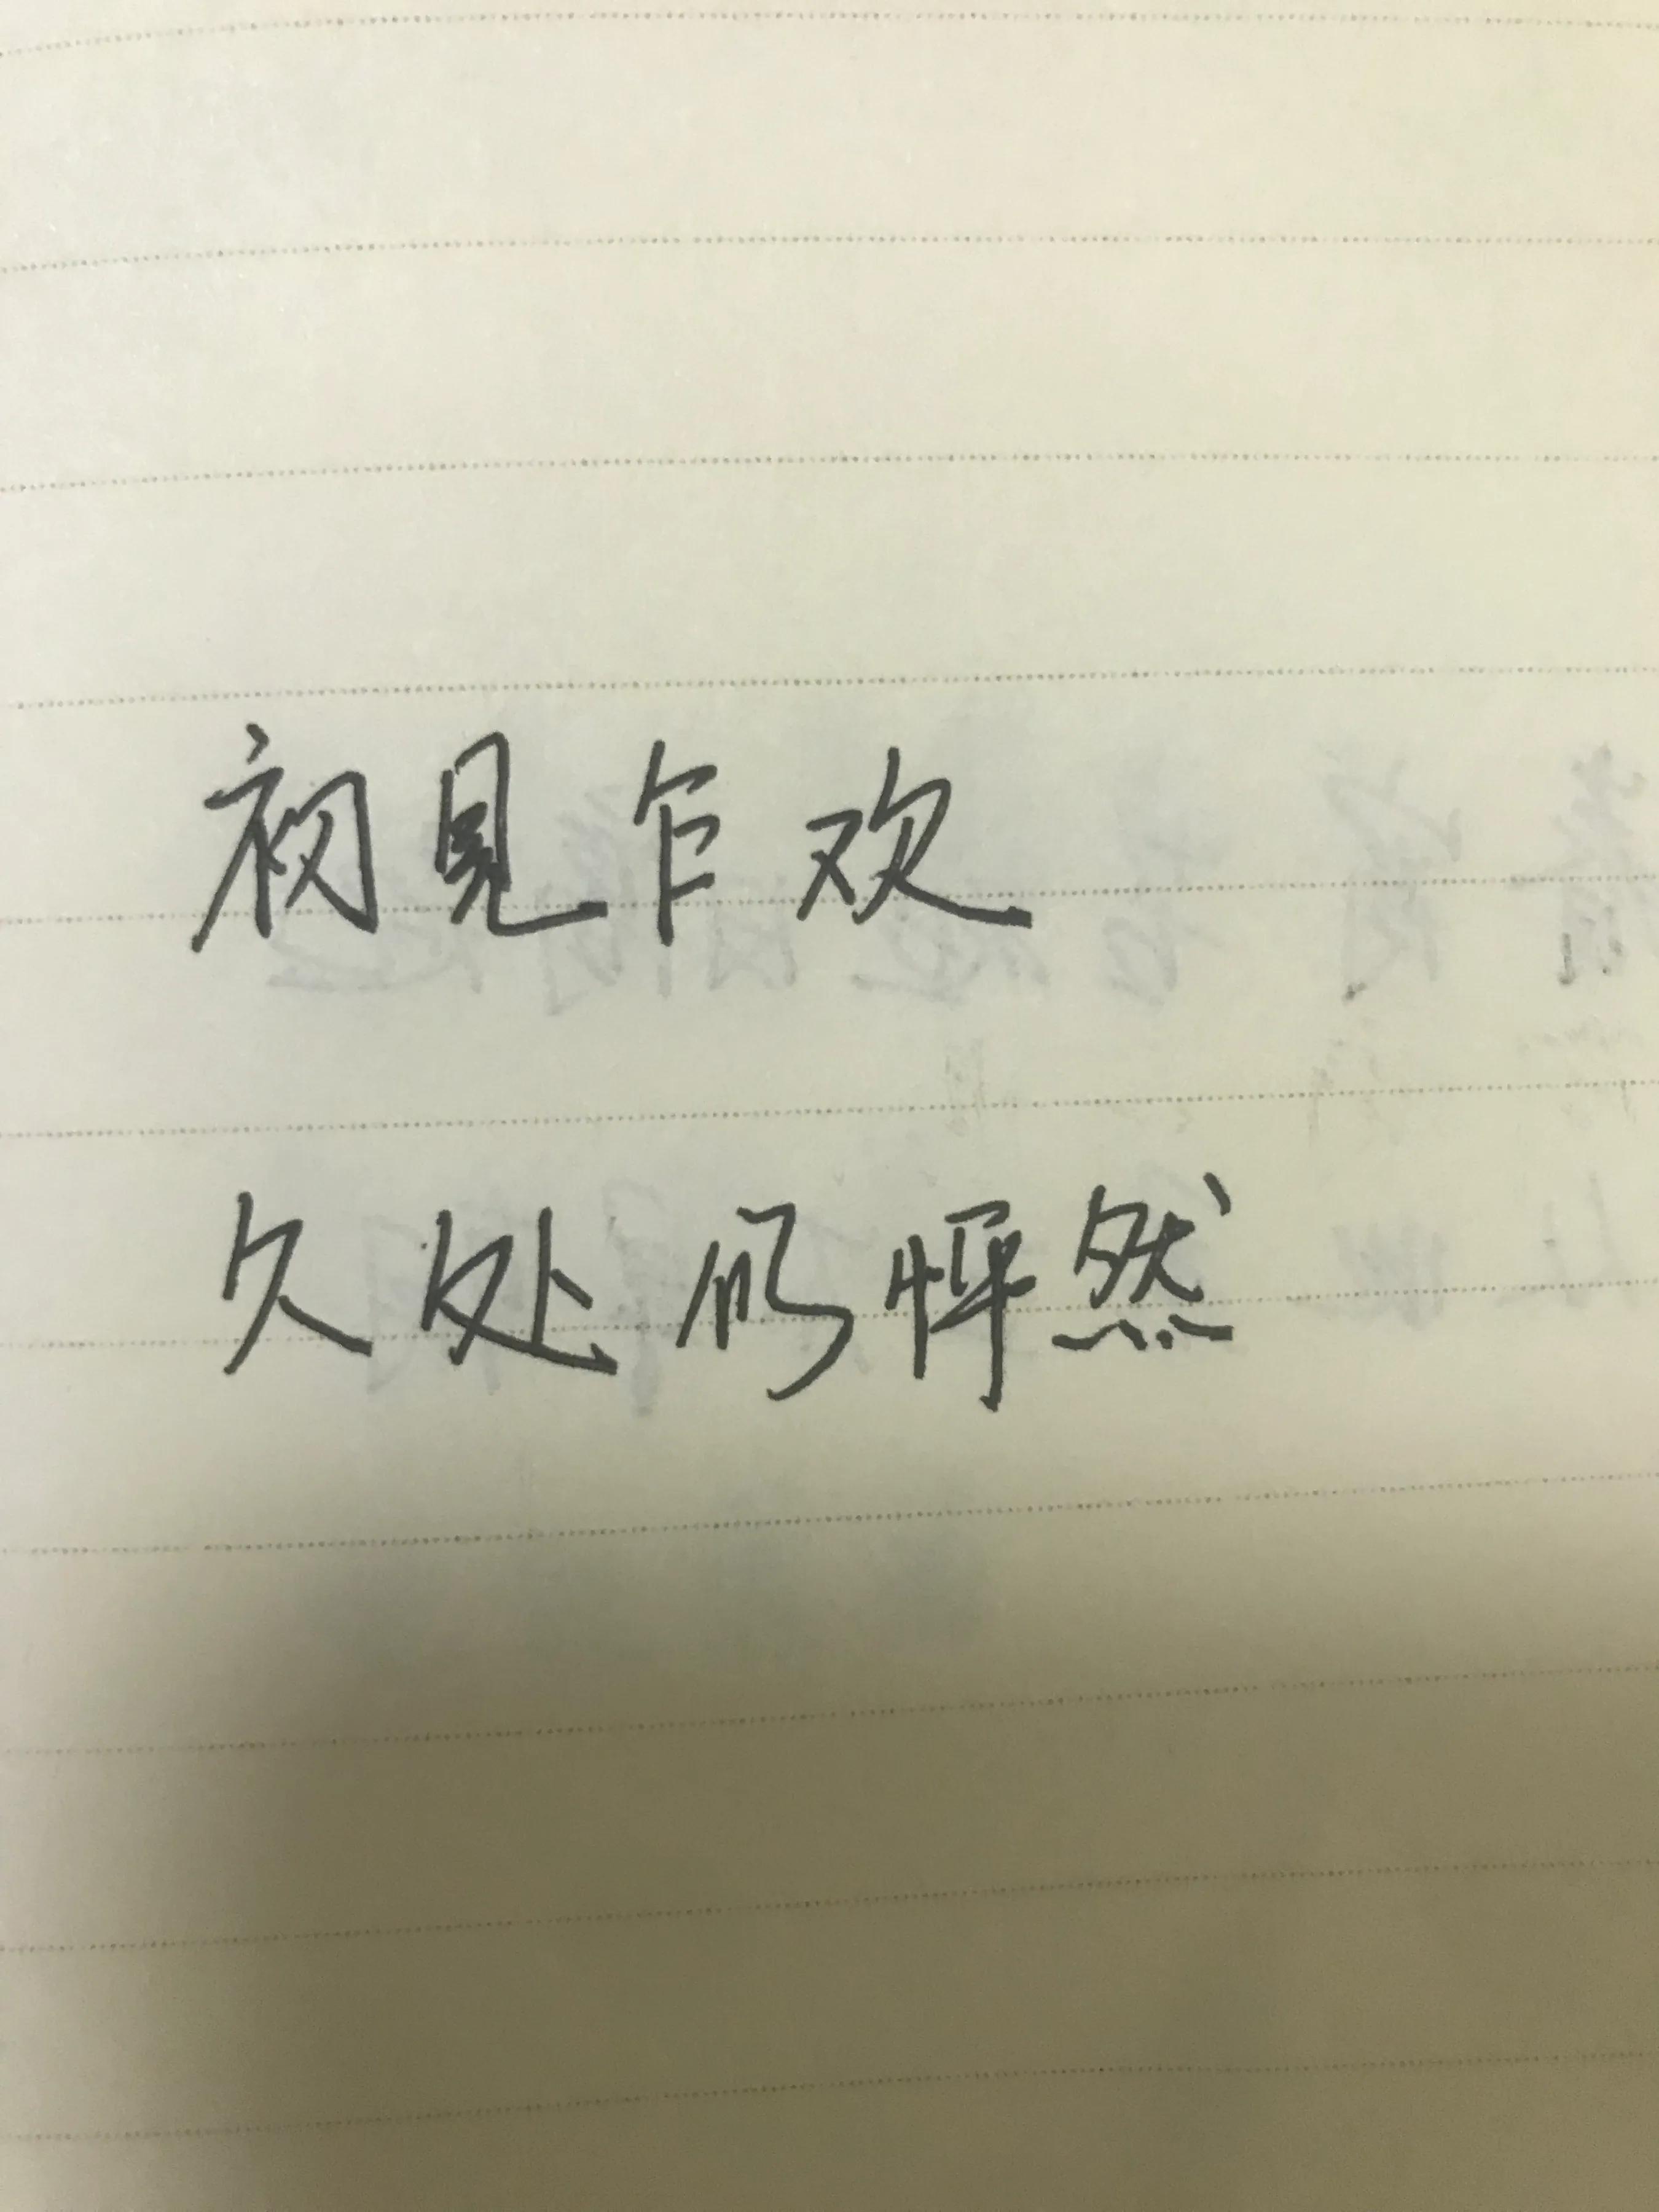 初見乍欢
久处仍怦然